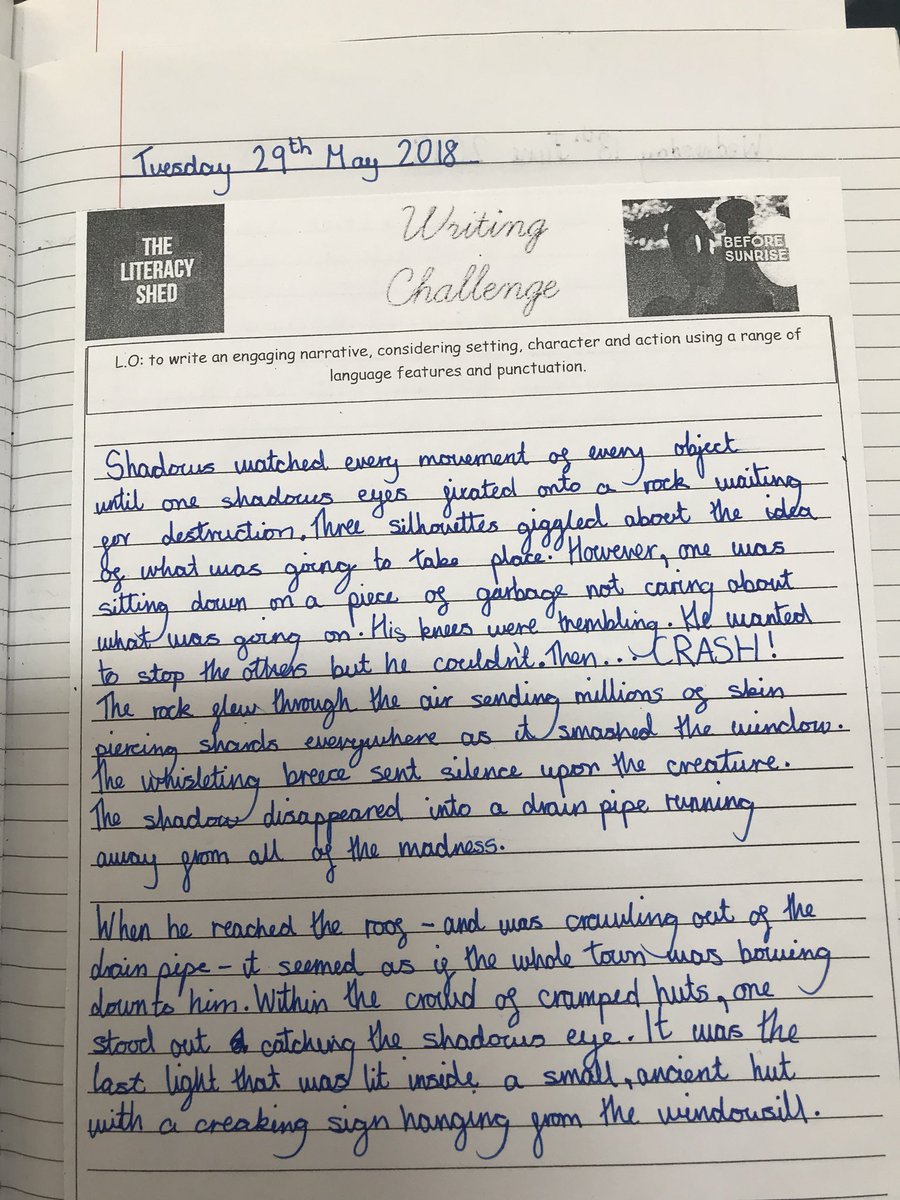 Tuesday 29th May 2018
THE
LITERACY
SHED
Writing
Challenge
BEFORE
SUNRISE
L.O: to write an engaging narrative, considering setting, character and action using a range of
language features and punctuation.
Shadows watched every movement of every object
until one shadows eyes fixated onto a rock waiting
for destruction. Three silhouettes giggled about the idea
of what was going to take place. However, one was
sitting down on a piece of garbage not caring about
what was going on. His knees were trembling. He wanted
to stop the others but he couldn't. Then... CRASH!
The rock flew through the air sending millions of skin
piercing shards everywhere as it smashed the window.
The whisleting breece sent silence upon the creature.
The shadow disappeared into a drain pipe running
away from all of the madness.
When he reached the roof - and was crawling out of the
drain pipe - it seemed as if the whole town was bowing
down to him. Within the crowd of cramped huts, one
stood out catching the shadows eye. It was the
last light that was lit inside a small, ancient hut
with a creaking sign hanging from the windowsill.